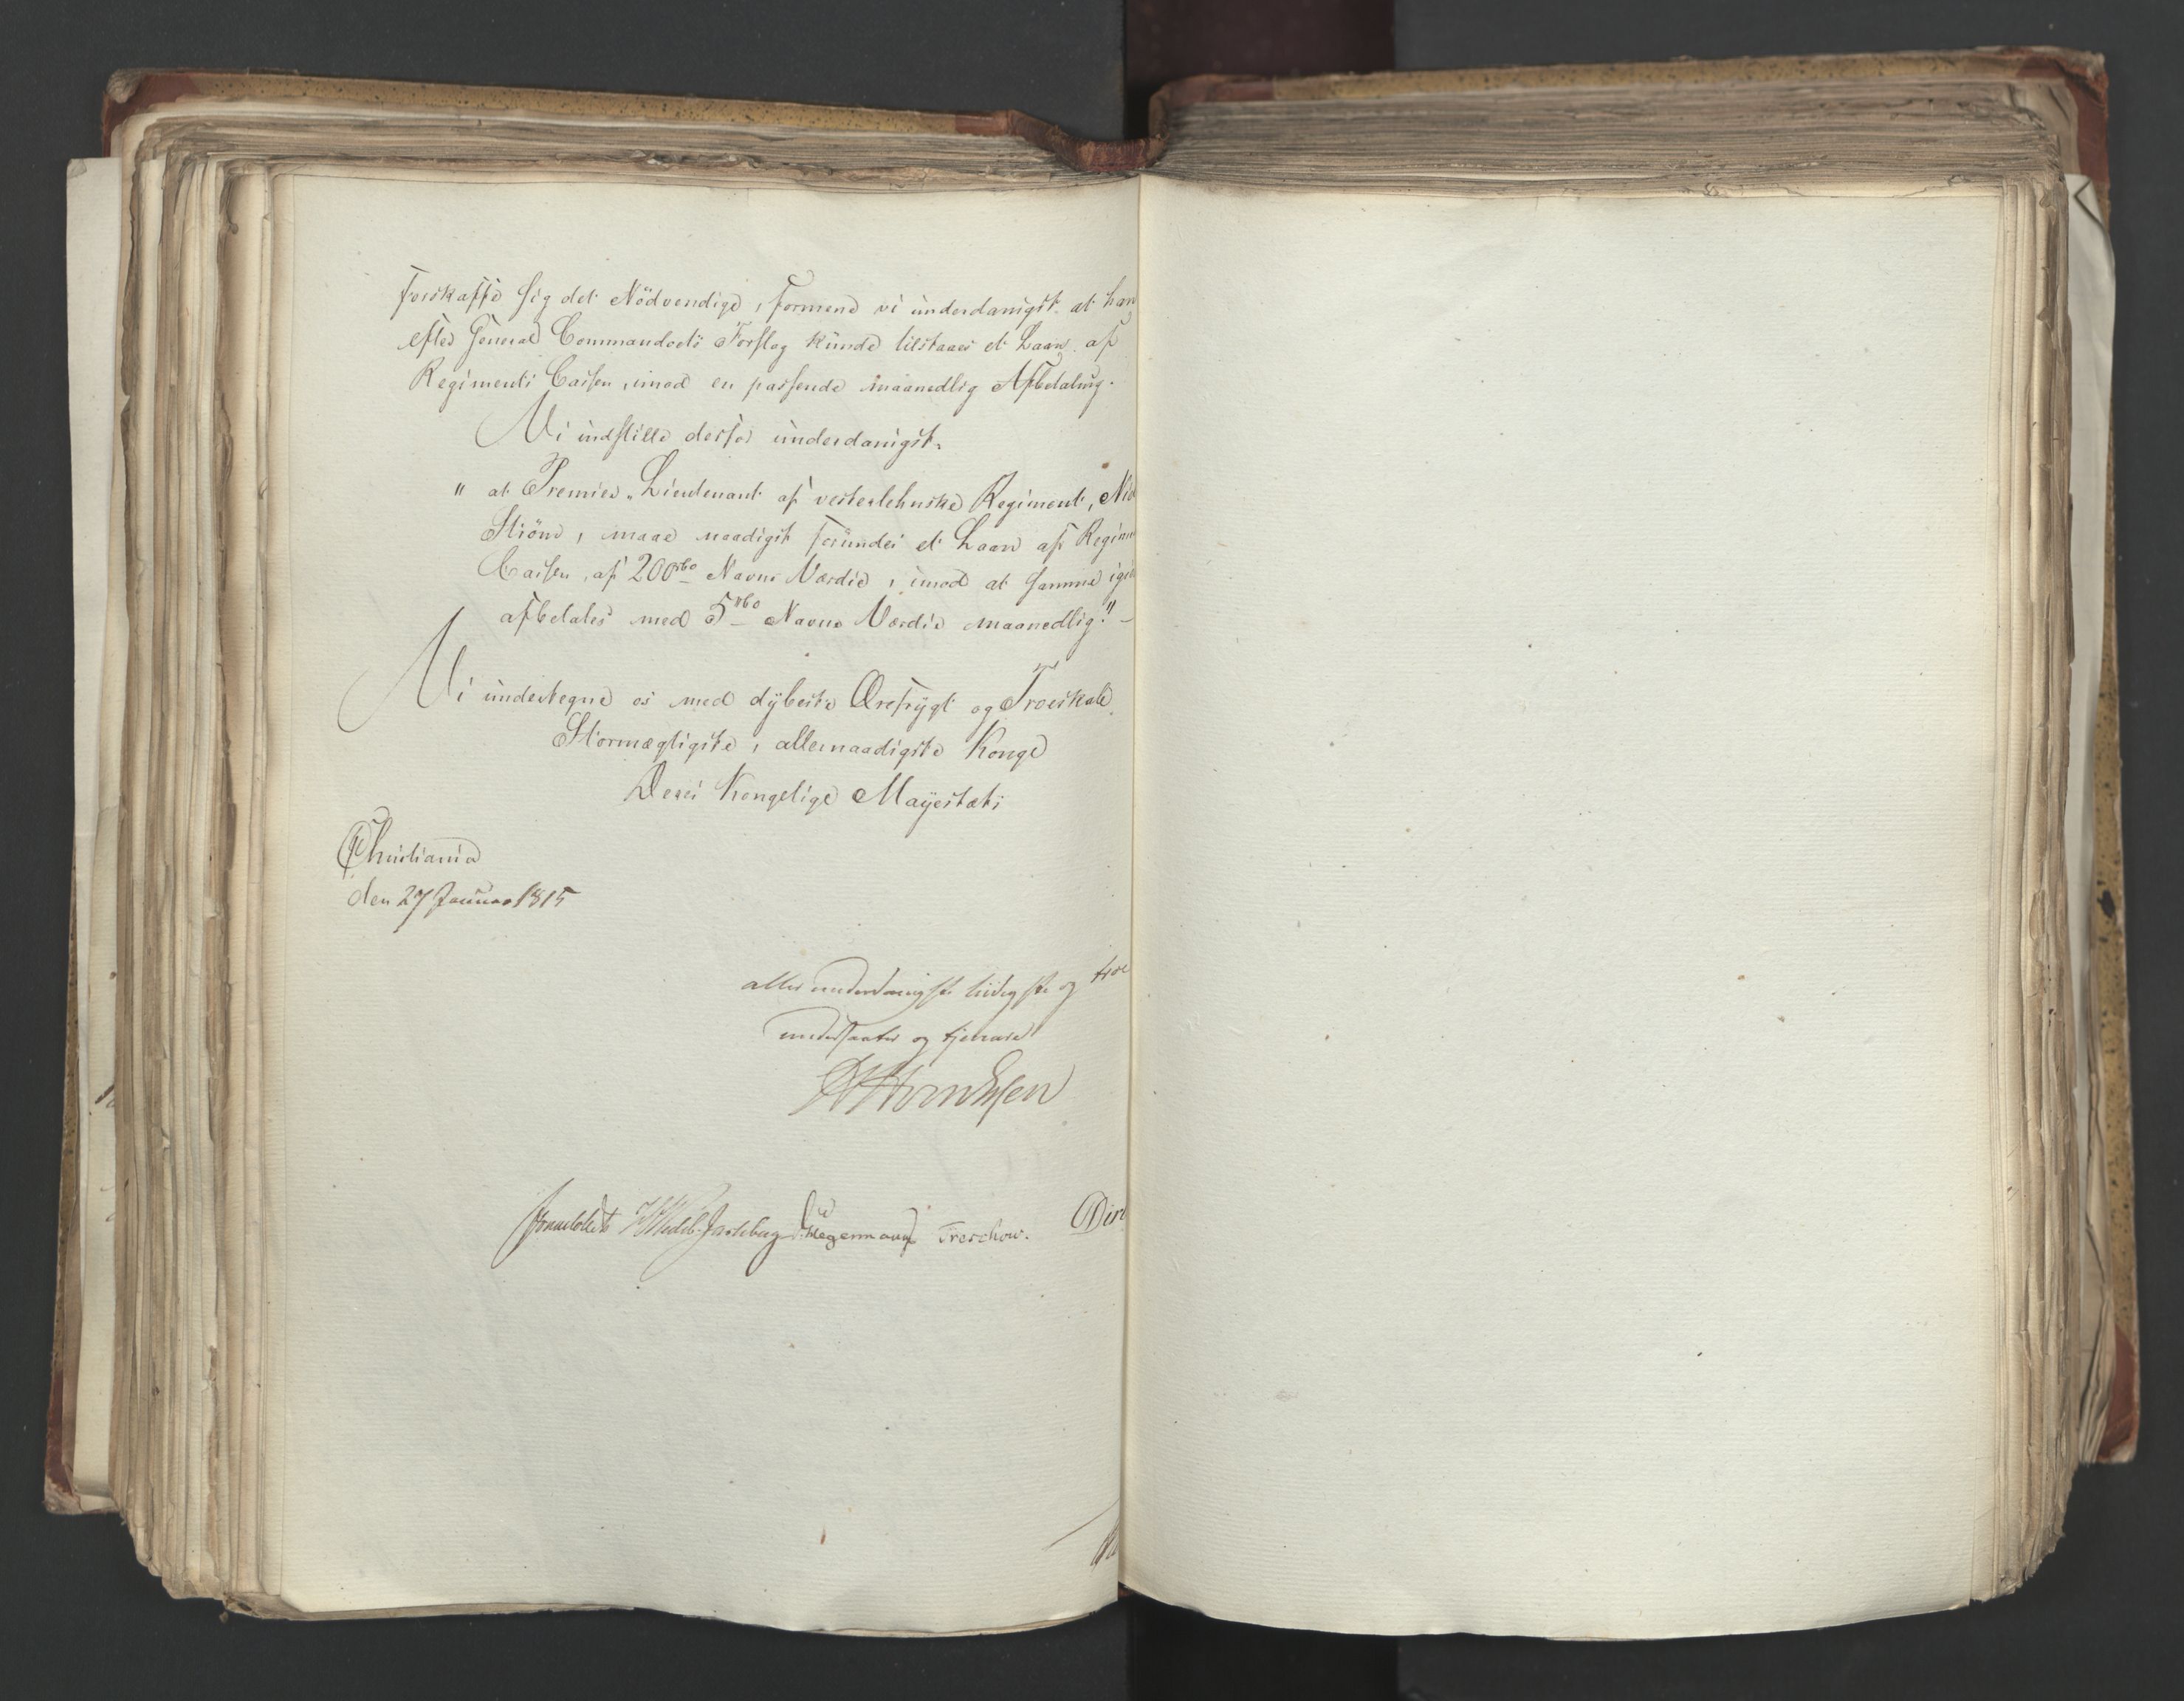 forskaffe sig det Nödvendige, formene vi underdanigst at han
efter General Commandoets Forslag kunde tilstaaes et Laan af
Regiments Cassen, imod en passende maanedlig Afbetaling.
Vi indstille derfor underdanigst.
" at Premier-Lieutenant af vesterlehnske Regiment,
Stiöm, maae naadigst forundes et Laan af Regim
Cassen, af 200 rbd Navne Værdie, imod at samme igie
afbetales med 5 rbd Navne Værdie maanedlig." -
Vi undertegne os med dybeste Ærefrygt og Troeskab
Stormægtigste, allernaadigste Konge
Deres Kongelige Mayestæts
Christiania
den 27 Januar 1815
aller underdanigste lydigste og troe
undersaatter og tjenere
Sommerhielm H Wedel-Jarlsberg D: Hegermann Treschow.